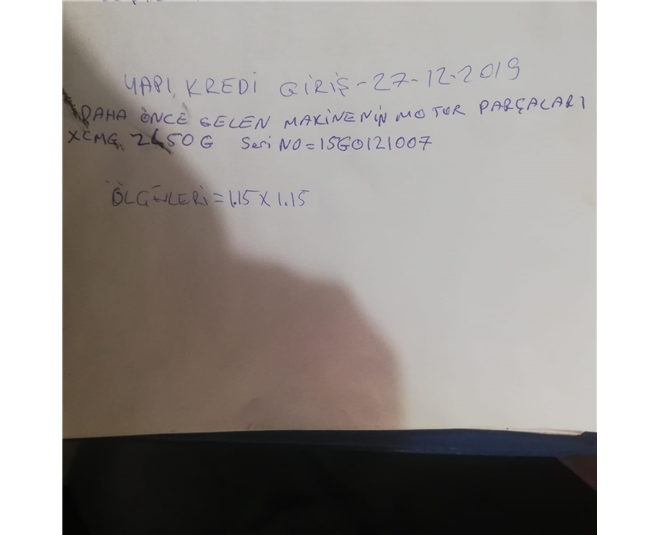 YAPI KREDİ GİRİŞ-27-12-2019
DAHA ÖNCE GELEN MAKİNENİN MOTOR PARÇALARI
XCMG Seri NO=15G0121007
ÖLGÜLERİ=1.15X1.15